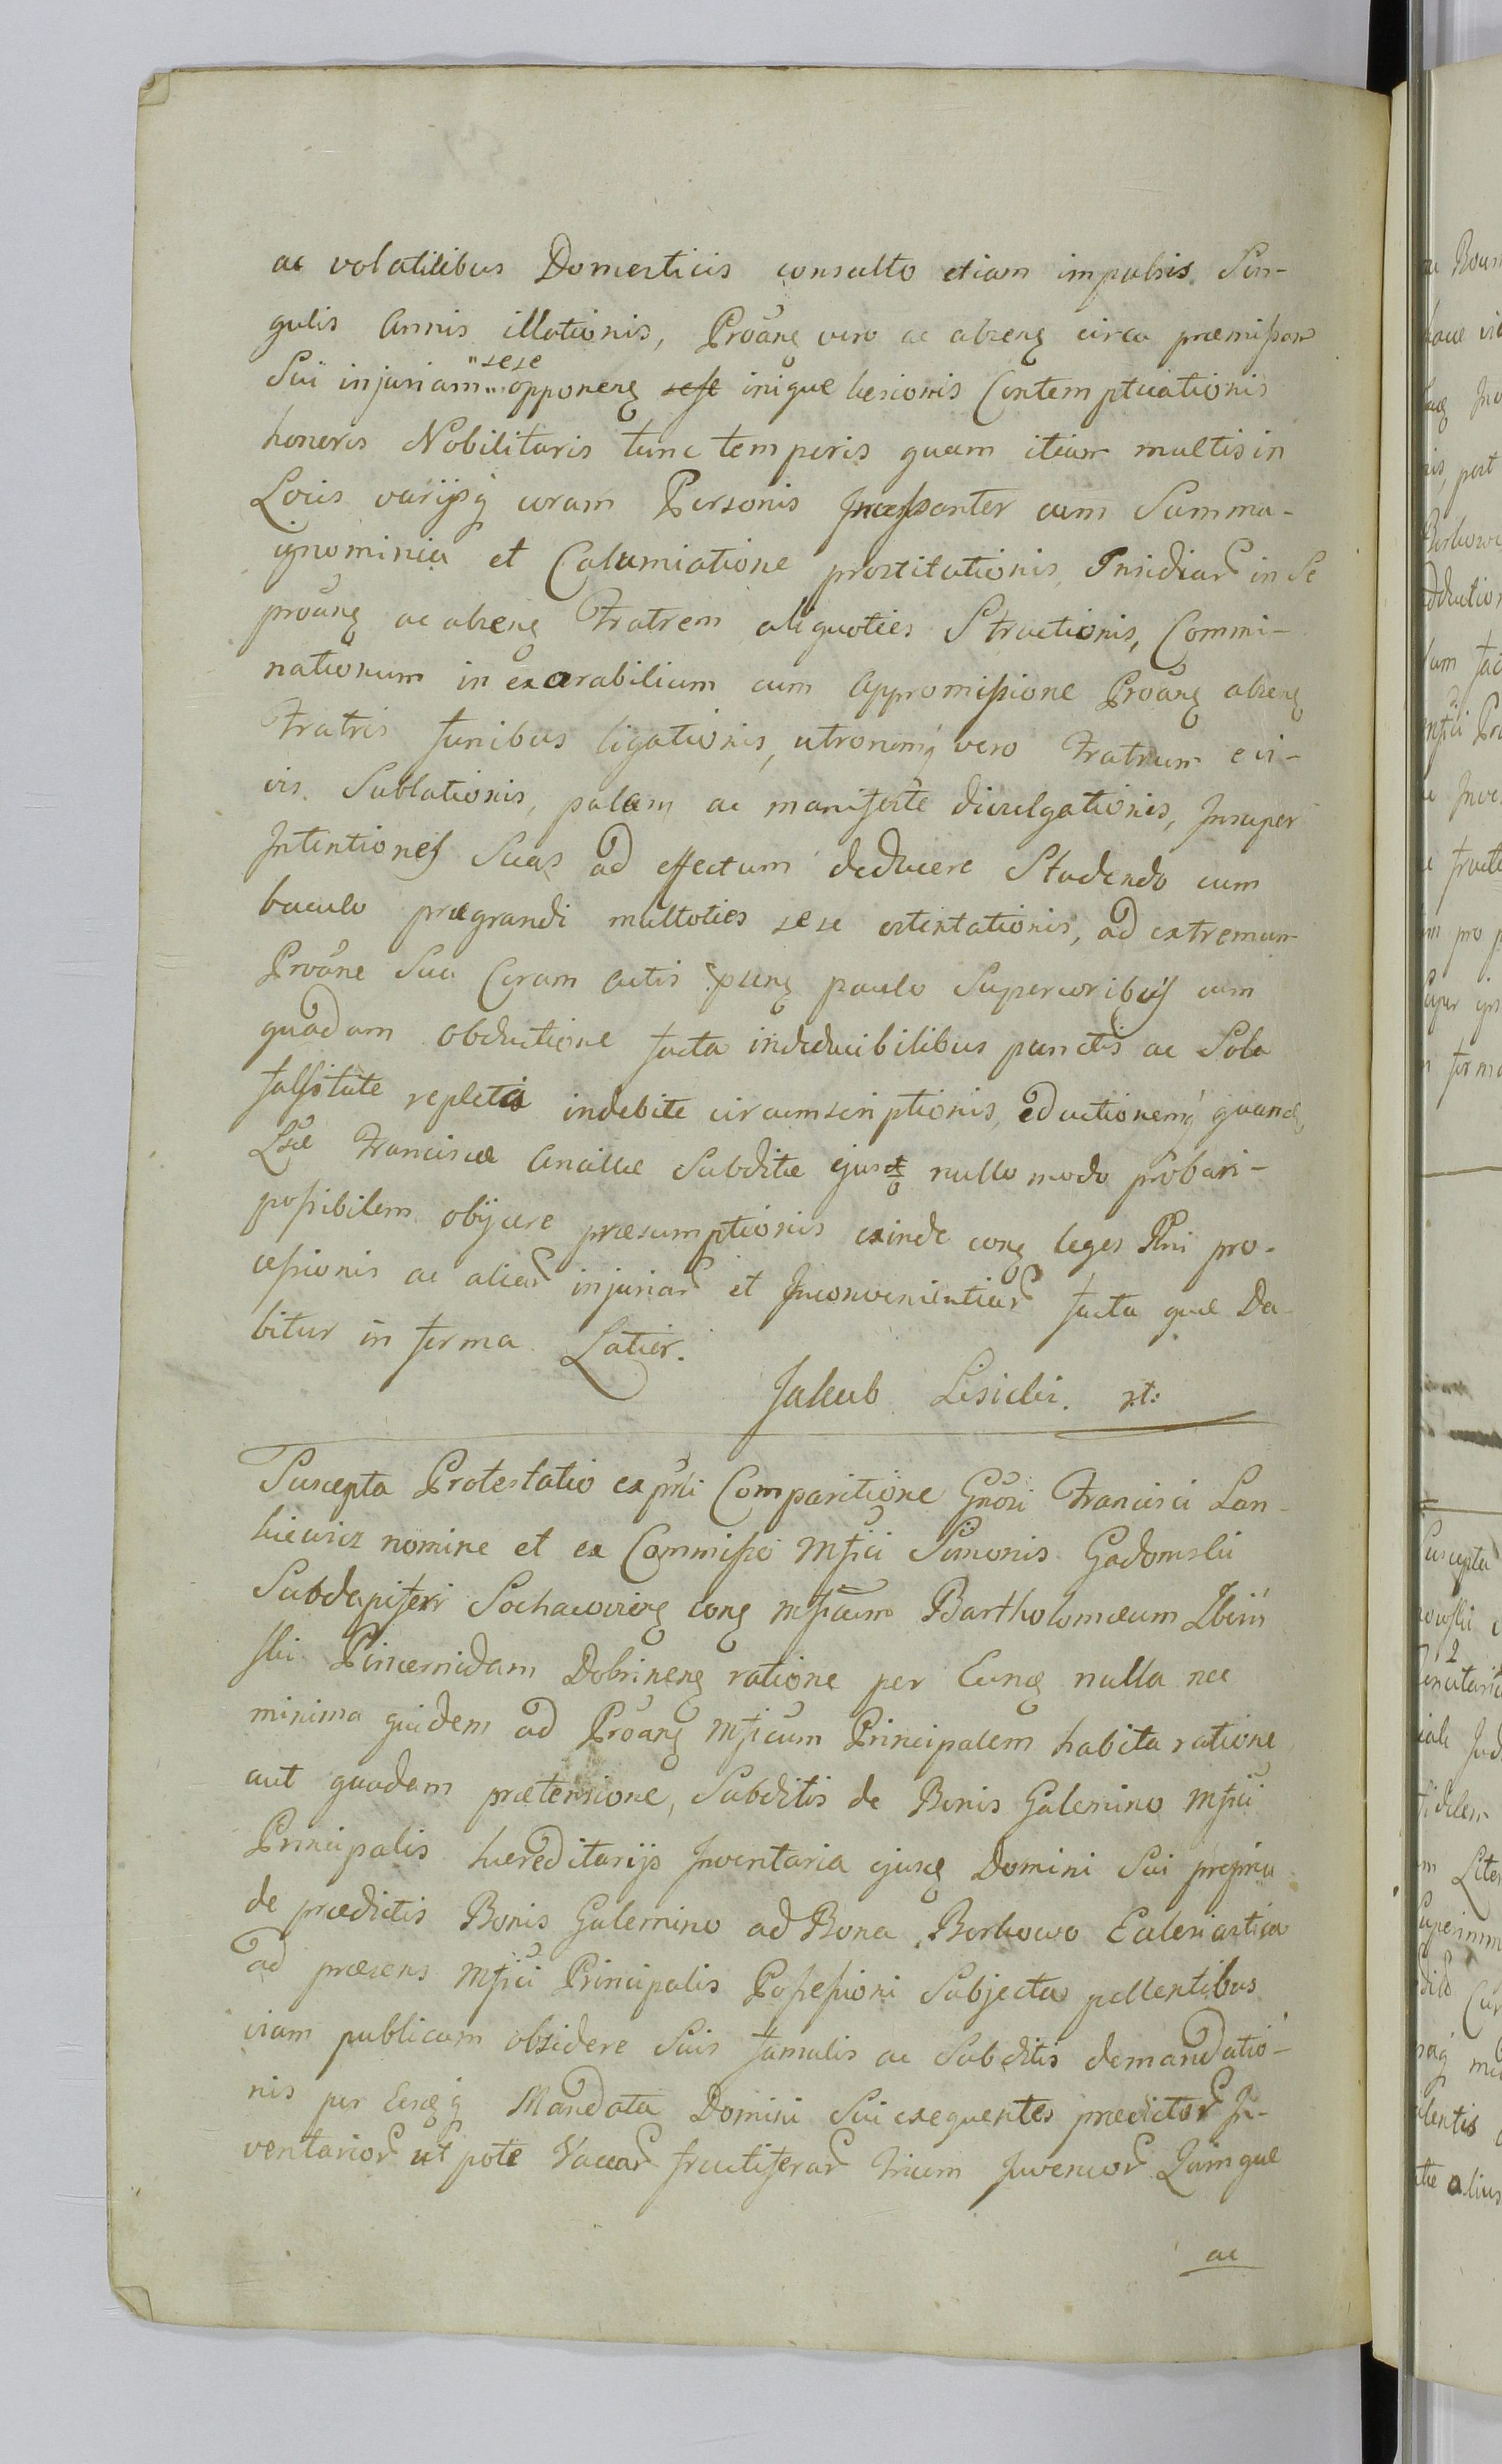 ac volatilibus Domesticis consulto etiam impulsis Sin-
gulis Annis illationis, Proãnꝫ vero ac absenꝫ circa præmissam
Sui injuriam sese opponenꝫ inique læsionis Contemptuationis
honoris Nobilitaris tunc temporis quam etiam multis in
Locis varijsqꝫ coram Personis Incessanter cum Summa-
ignominia et Calumiatione prostitutionis, Insidiar in Se
proãnꝫ ac absenꝫ Fratrem aliquoties Structionis, Commi-
nationum in exarabilium cum Appromissione Proãnꝫ absenꝫ
Fratris funibus ligationis, utronimqꝫ vero Fratrum e vi-
vis Sublationis, palam ac manifeste divulgationis, Insuper
Intentiones Suas ad effectum deducere Studendo cum
baculo prægrandi multoties sese ostentationis, ad extremum
Proãne Sua Coram Actis pñenꝫ paulo Superioribus cum
quadam obductione facta indeducibilibus punctis ac Sola
falsitate repletis indebite circumscriptionis, eductionemqꝫ quandꝫ
Lsæ Franciscæ Ancillæ Subditæ ejusd nullo modo probari-
possibilem objicere præsumptionis exinde conꝫ leges Pñi pro-
cessionis ac aliar injuriar et Inconvenientiar facta quæ Da
bitur in forma Latior.
Jakub Lisicki. rt:
Suscepta Protestatio ex pñti Comparitione Gñosi Francisci Lan-
kiewicz nomine et ex Commisso Mfici Simonis Gadomski
Subdapiferi Sochaczovienꝫ conꝫ Mficum Bartholomæum Zbiiń
ski Pincernidam Dobrinenꝫ ratione per Eunꝫ nulla nec
minima quidem ad Proãnꝫ Mficum Principalem habita ratione
aut quadam prætensione, Subditis de Bonis Galemino Mfici
Principalis hæreditarijs Inventaria ejusꝫ Domini Sui propria
de prædictis Bonis Galemino ad Bona Borkowo Ecclesiastica
ad præsens Mfici Principalis Possessioni Subjecta pellentibus
viam publicam obsidere Suis famulis ac Subditis demandatio-
nis per Eosqꝫ Mandata Domini Sui exequentes prædictor In-
ventarior ut pote Vaccar fructiferar trium Juvencor Quinque
ac